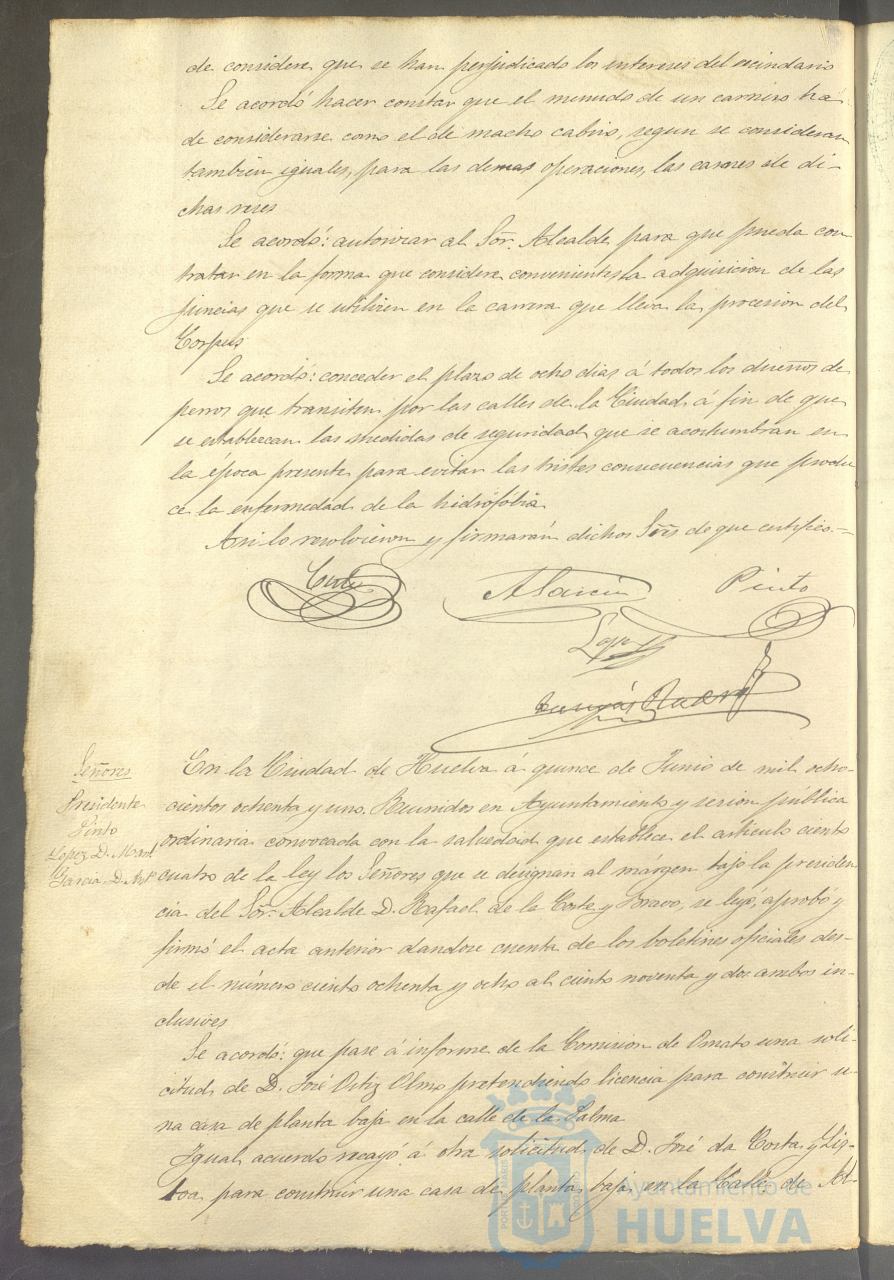 de considere que se han perjudicado los intereses del vecindario
Se acordó hacer constar que el menudo de un carnero ha
de considerarse como el de macho cabrio, segun se consideran
tambien iguales, para las demas operaciones, las carnes de di-
chas reses
Se acordó: autorizar al Sor. Alcalde para que pueda con
tratar en la forma que considere conveniente la adquisicion de las
juncias que se utilicen en la carrera que lleva la procesion del
Corpus
Se acordó: conceder el plazo de ocho dias á todos los dueños de
perros que transiten por las calles de la Ciudad á fin de que
se establezcan las medidas de seguridad que se acostumbran en
la época presente para evitar las tristes consecuencias que produ
ce la enfermedad de la hidrofóbia
Asi lo resolvieron y firmarán dichos Sres de que certifico.=
Corte
A Garcia
Pinto
Lopez
Señores
Presidente
Pinto
Lopez D. Manl
Garcia D. Ant°
En la Ciudad de Huelva á quince de Junio de mil ocho-
cientos ochenta y uno. Reunidos en Ayuntamiento y sesion pública
ordinaria convocada con la salvedad que establece el articulo ciento
cuatro de la ley los Señores que se designan al márgen bajo la presiden
cia del Sor. Alcalde D. Rafael de la Corte y Bravo, se leyó, aprobó y
firmó el acta anterior dandose cuenta de los boletines oficiales des-
de el número ciento ochenta y ocho al ciento noventa y dos ambos in-
clusives
Se acordó: que pase á informe de la Comision de Ornato una soli-
citud de D. José Ortiz Olmo pretendiendo licencia para construir u-
na casa de planta baja en la calle de la Palma
Igual acuerdo recayó á otra solicitud de D. José da Costa y Lis-
boa para construir una casa de planta baja en la Calle de
Ayuntamiento de
HUELVA